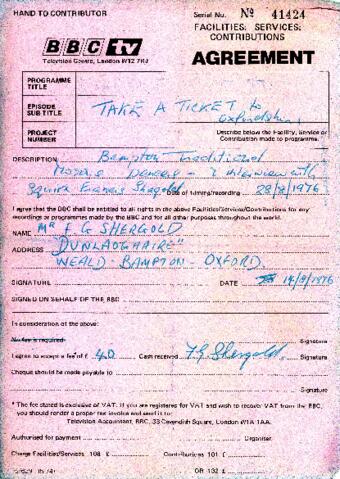 HAND TO CONTRIBUTOR
Serial No. Nº 41424
FACILITIES: SERVICES: CONTRIBUTIONS
BBC tv
Television Centre, London W12 7RJ
AGREEMENT
PROGRAMME TITLE
EPISODE SUB TITLE
TAKE A TICKET to Oxfordshire
PROJECT NUMBER
Describe below the Facility, Service or Contribution made to programme.
DESCRIPTION Bampton Traditional
Morris Dancers - & interview with
Squire Francis Shergold Date of filming/recording 28/8/1976
I agree that the BBC shall be entitled to all rights in the above Facilities/Services/Contributions for any recordings or programmes made by the BBC and for all other purposes throughout the world.
NAME Mr F. G SHERGOLD
ADDRESS "DUNLAOGHAIRE"
WEALD - BAMPTON - OXFORD.
SIGNATURE DATE 14/9/1976
SIGNED ON BEHALF OF THE BBC
In consideration of the above:
No fee is required Signature
I agree to accept a fee of £ 40 Cash received F.G Shergold. Signature
Cheque should be made payable to
Signature
* The fee stated is exclusive of VAT. If you are registered for VAT and wish to recover VAT from the BBC, you should render a proper tax invoice and send it to:
Television Accountant, BBC, 33 Cavendish Square, London W1A 1AA.
Authorised for payment Organiser
Charge Facilities/Services 108 £ Contributions 101 £
OR 132 £